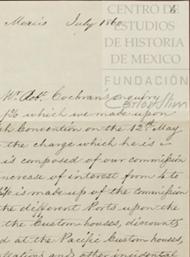 CENTRO DE
ESTUDIOS
DE HISTORIA
DE MEXICO
FUNDACIÓN
Carlos Slim
Mexico July 186
Mr. Robt. Cochran's enquiry
which we made upon
Convention on the 12th May
the charge which he is
is composed of our commission
increase of interest from 4 to
is made up of the commission
the different Ports upon the
the Custom houses, discounts
at the Pacific Custom houses,
and other incidental